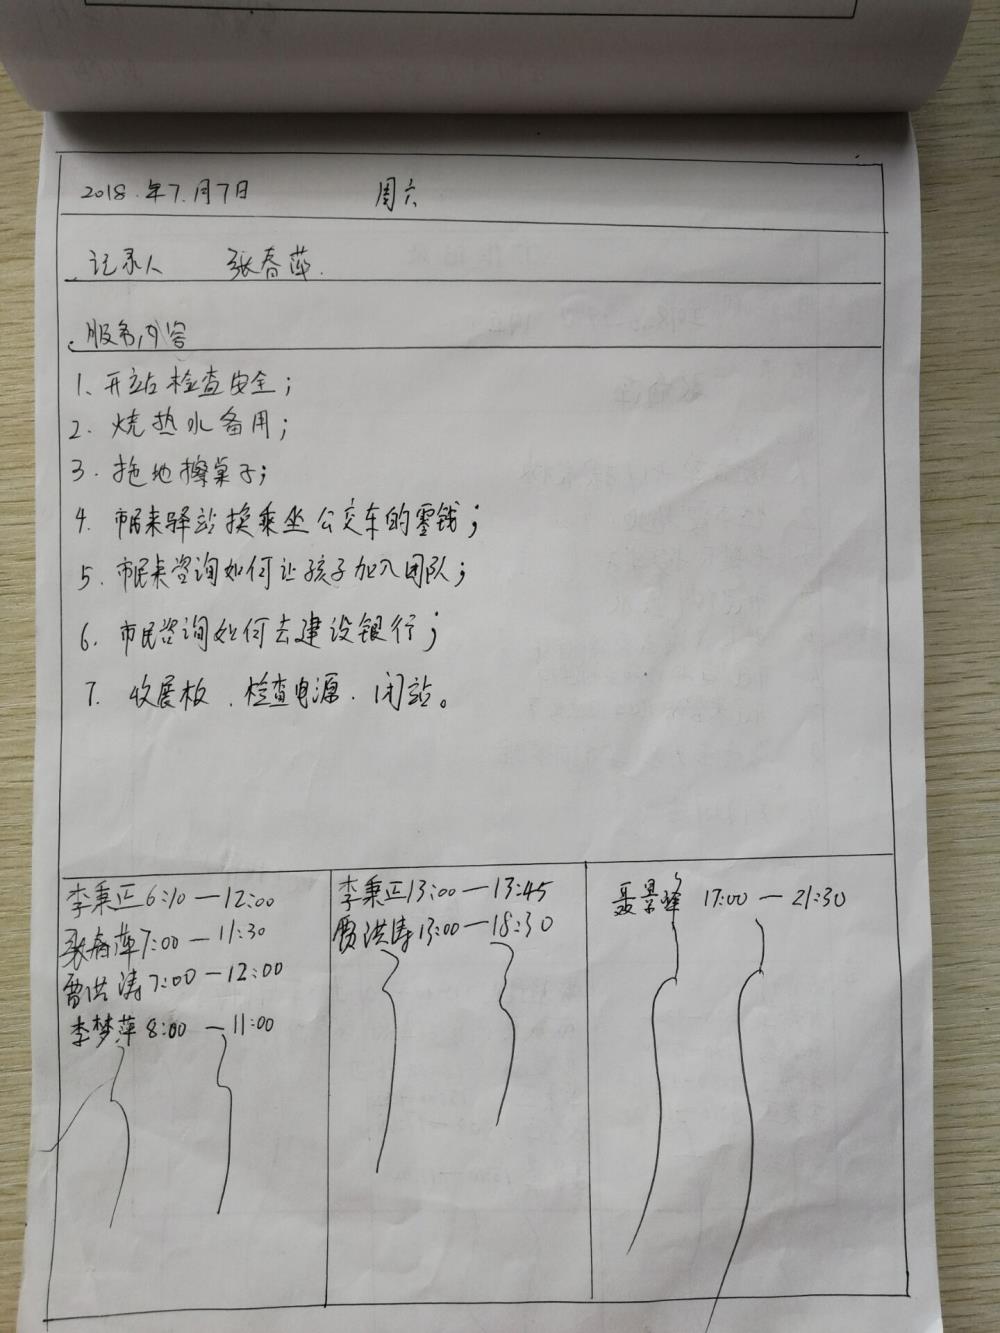 2018.年7.月7日 周六
记录人 张春萍.
服务内容
1、开站检查安全；
2、烧热水备用；
3、拖地擦桌子；
4、市民来驿站换乘坐公交车的零钱；
5、市民来咨询如何让孩子加入团队；
6、市民咨询如何去建设银行；
7、收展板、检查电源、闭站。
李秉正6:10—12:00
张春萍7:00—11:30
贾洪涛7:00—12:00
李梦萍8:00—11:00
李秉正13:00—13:45
贾洪涛13:00—18:30
聂景峰 17:00—21:30